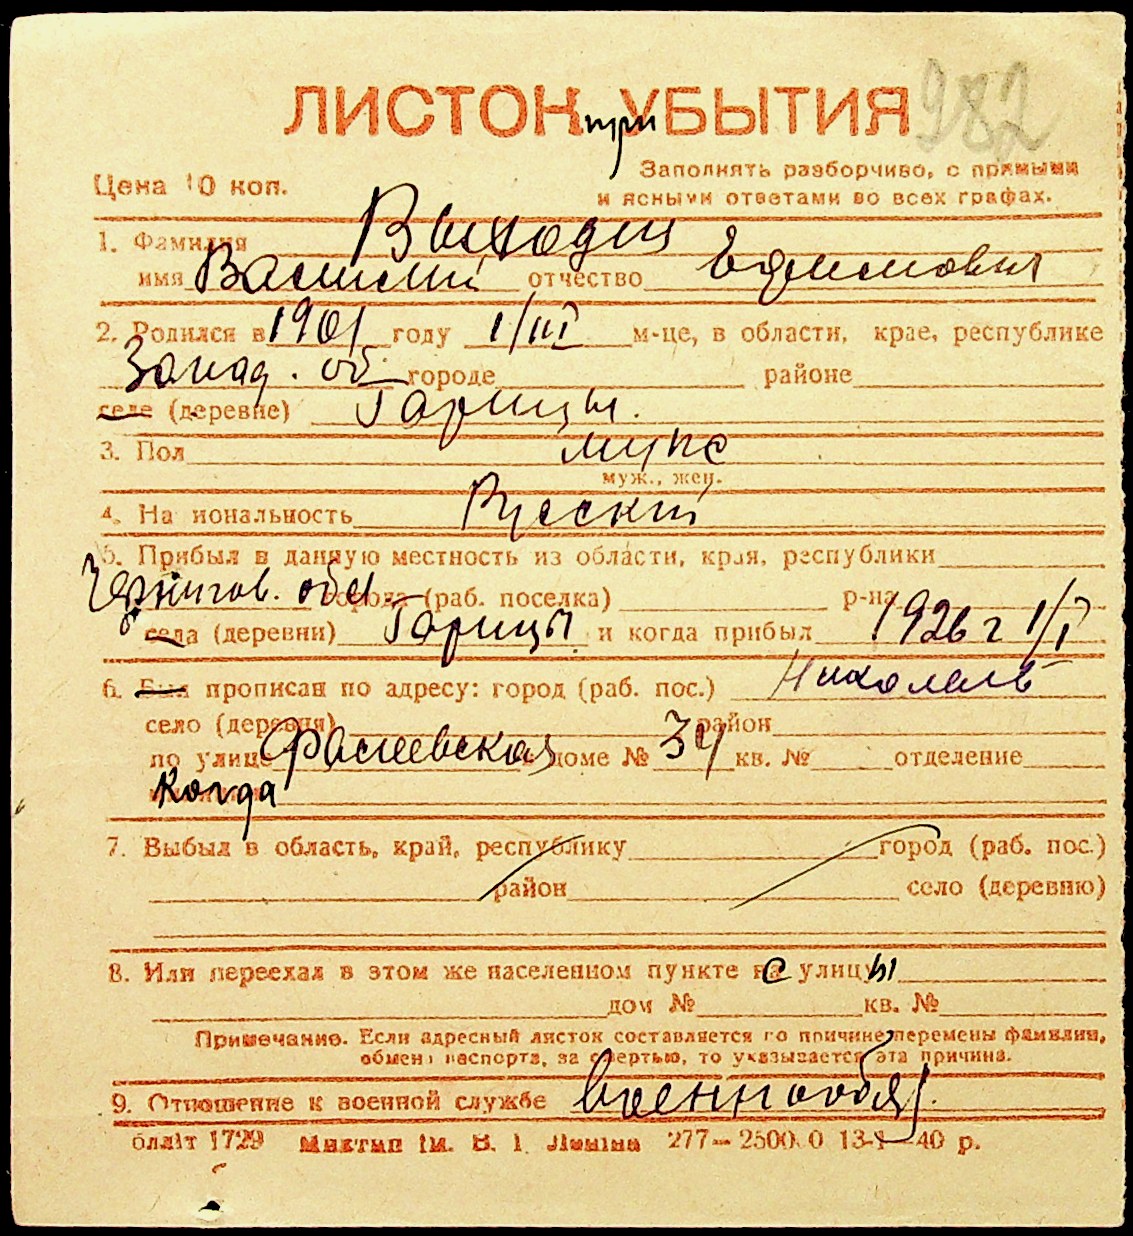 982
ЛИСТОК при УБЫТИЯ
Цена 10 коп.
Заполнять разборчиво, с прямыми
и ясными ответами во всех графах.
1. Фамилия Выходец
имя Василий отчество Ефимович
2. Родился в 1901 году 1/III м-це, в области, крае, республике
Запад. об. городе районе
селе (деревне) Гарицы.
3. Пол муж
муж., жен.
4. На иональность Русский
5. Прибыл в данную местность из области, края, республики
Чернигов. обл города (раб. поселка) р-на
села (деревни) Гарицы и когда прибыл 1926 г 1/I
6. Был прописан по адресу: город (раб. пос.) Николаев
село (деревня) район
по улице доме № 34 кв. № отделение
когда
7. Выбыл в область, край, республику город (раб. пос.)
район село (деревню)
8. Или переехал в этом же населенном пункте с улицы
дом № кв. №
Примечание. Если адресный листок составляется по причине перемены фамилии,
обмена паспорта, за смертью, то указывается эта причина.
9. Отношение к военной службе военнообяз.
блліт 1729 Миктип ім. В. І. Леніна 277—2500.0 13-1—40 р.